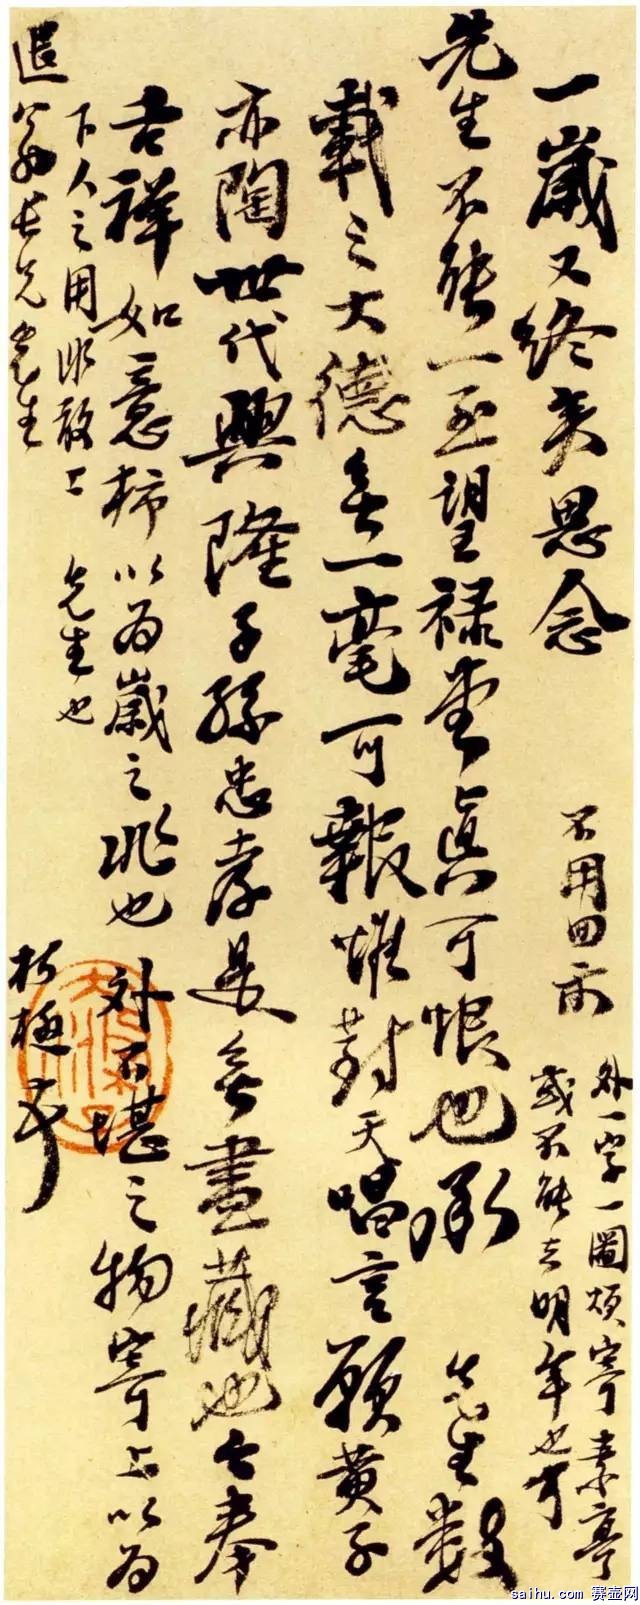 一歲又終矣思念
不用回示
外一字一圖煩寄素亭
或不能去明年也可
先生不能一至望祿堂真可恨也承 先生數
載之大德無一毫可報惟對天唱言願黃子
亦陶世代興隆子孫忠孝是無盡藏也今奉
吉祥如意柿以為歲之兆也 外不堪之物寄上以為
下人之用非敢上 先生也
退翁長兄先生 朽極
saihu.com 赛壶网